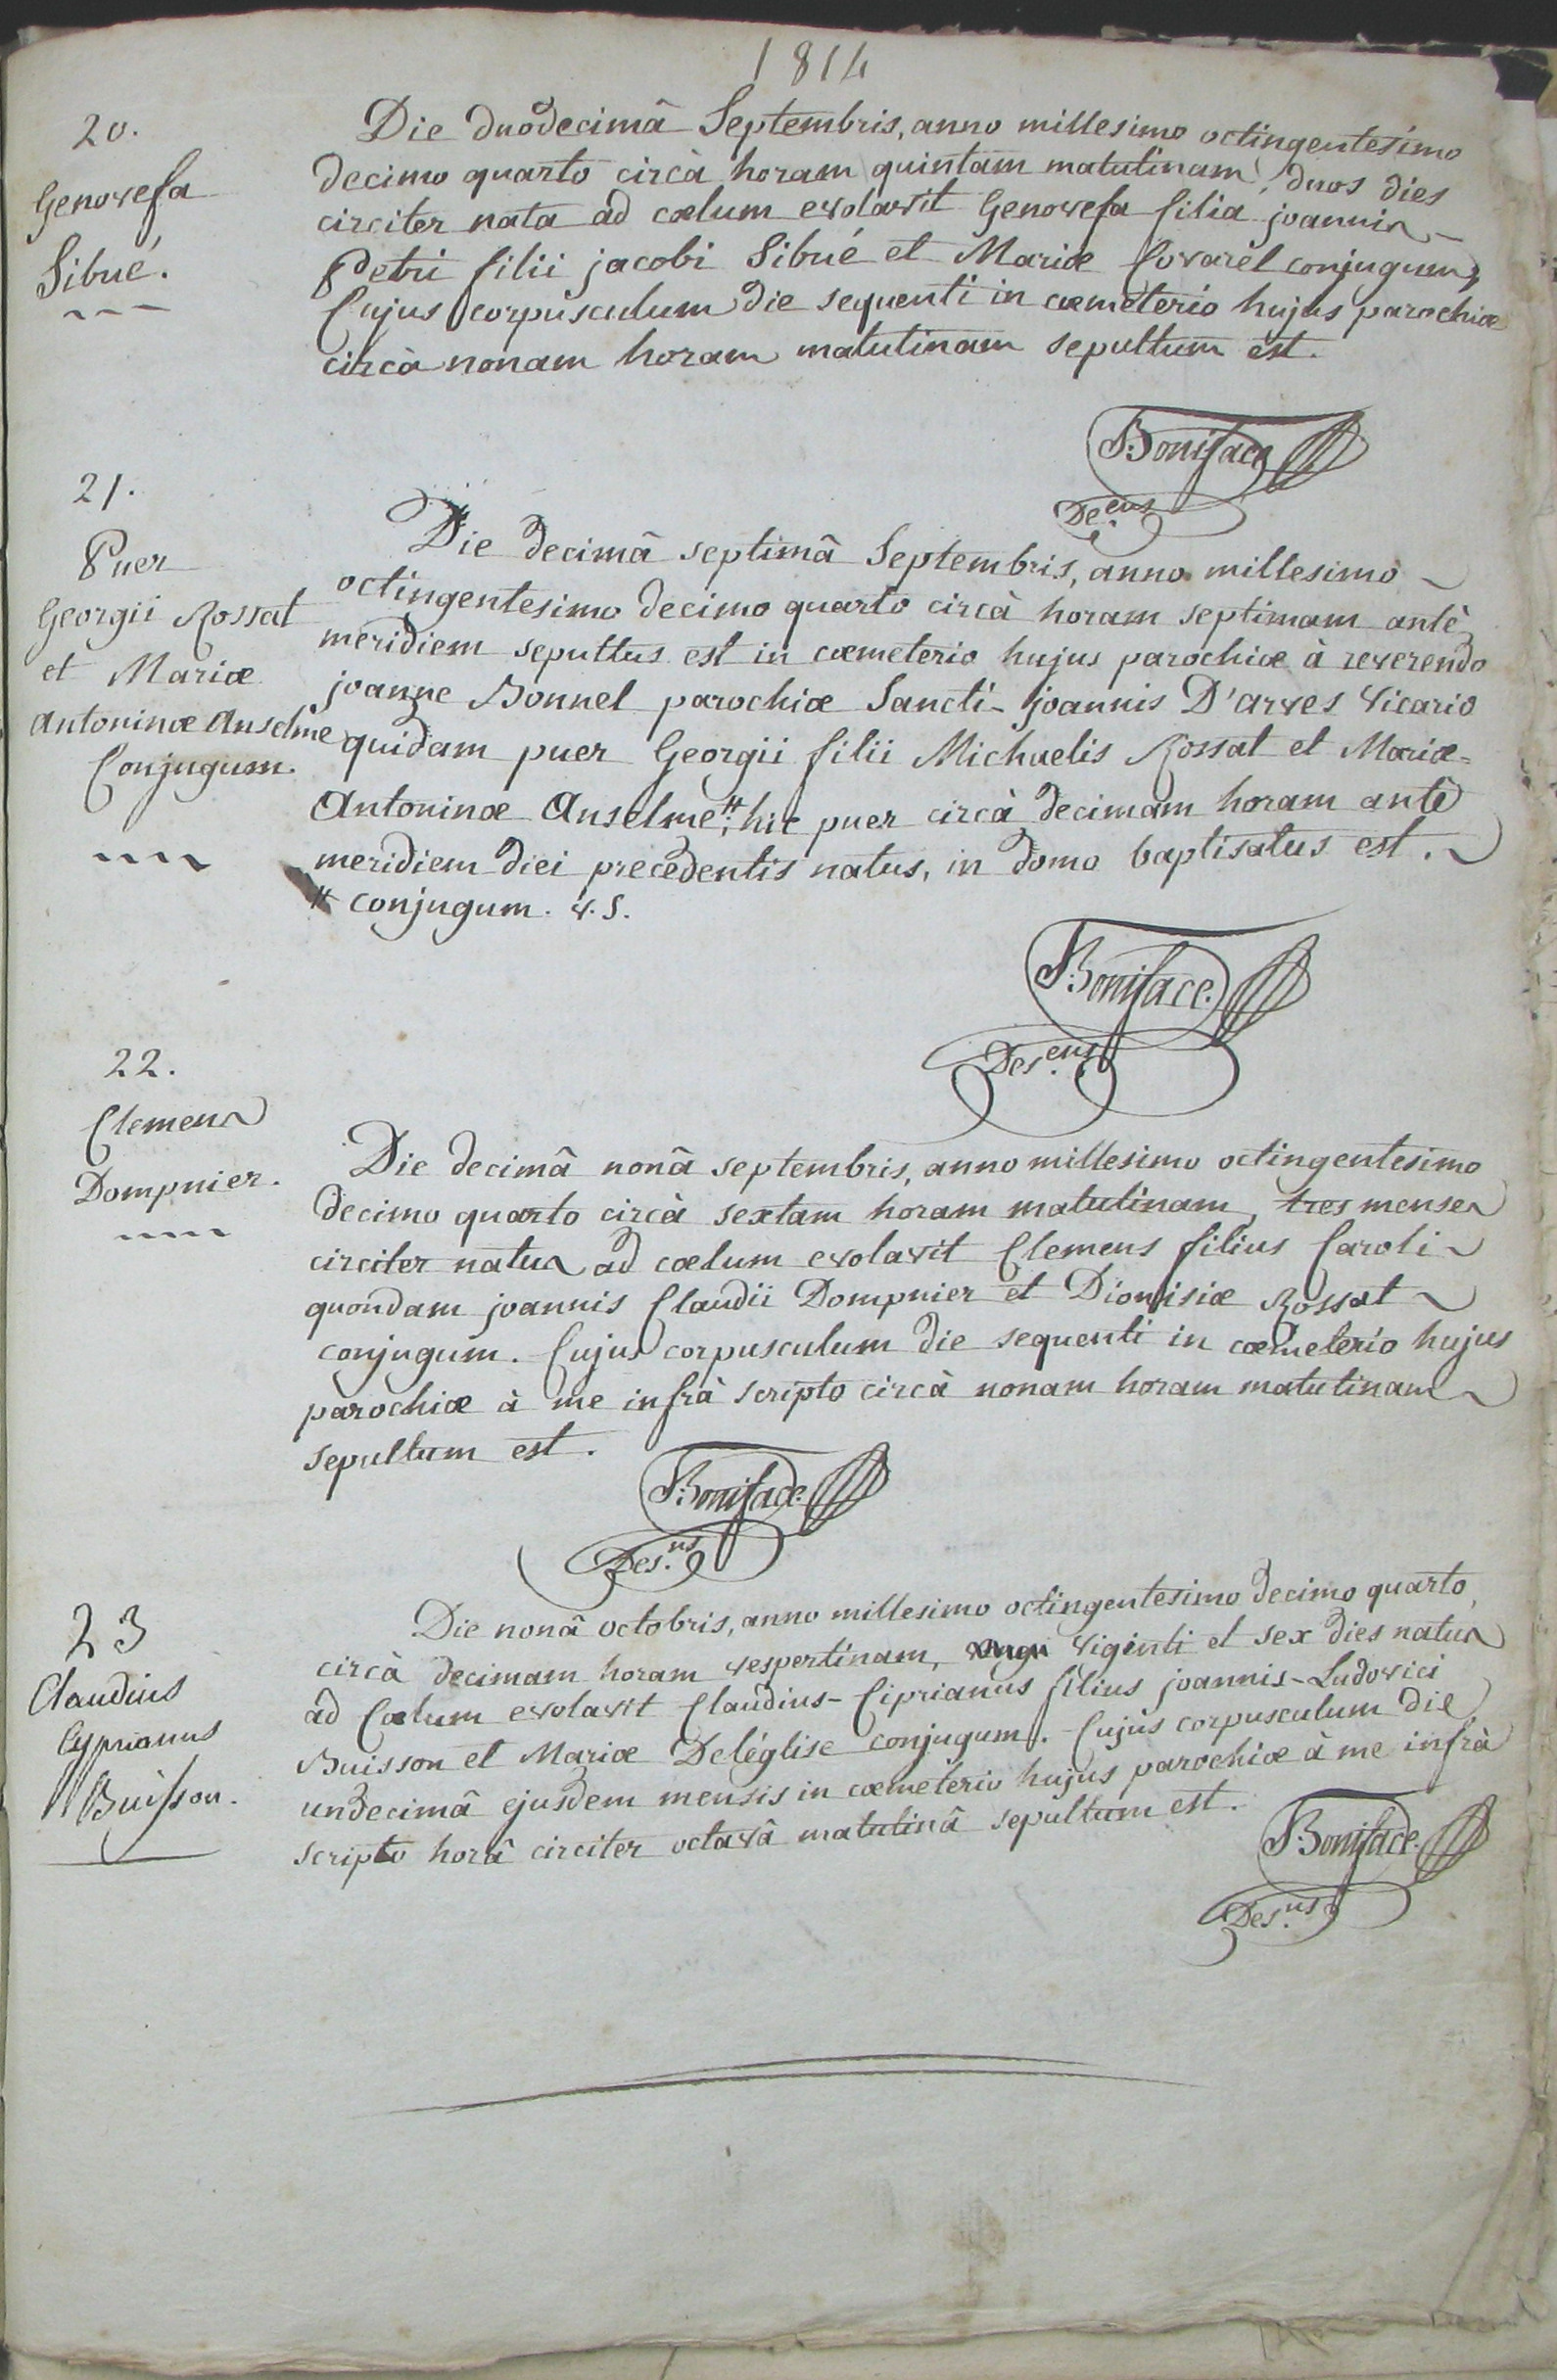 1814
20.
Genovefa
Sibué.
Die duodecimâ Septembris, anno millesimo octingentesimo
decimo quarto circà horam quintam matutinam, duos dies
circiter nata ad cælum evolavit Genovefa filia joannis-
Petri filii jacobi Sibué et Mariæ Covarel conjugum,
Cujus corpusculum die sequenti in cæmeterio hujus parochiæ
circà nonam horam matutinam sepultum est.
Boniface
De.eus
21.
Puer
Georgii Rossat
et Mariæ
Antoninæ Anselme
Conjugum.
Die decimâ septimâ Septembris, anno millesimo
octingentesimo decimo quarto circà horam septimam antè
meridiem sepultus est in cæmeterio hujus parochiæ à reverendo
joanne Bonnel parochiæ Sancti-joannis D'arves vicario
quidam puer Georgii filii Michaelis Rossat et Mariæ-
Antoninæ Anselme #; hic puer circà decimam horam antè
meridiem diei precedentis natus, in domo baptisatus est.
# conjugum. v.s.
Boniface.
Des.eus
22.
Clemens
Dompnier.
Die decimâ nonâ septembris, anno millesimo octingentesimo
decimo quarto circà sextam horam matutinam, tres menses
circiter natus ad cælum evolavit Clemens filius Caroli
quondam joannis Claudii Dompnier et Dionisiæ Rossat
conjugum. Cujus corpusculum die sequenti in cæmeterio hujus
parochiæ à me infrà scripto circà nonam horam matutinam
sepultum est.
Boniface.
Des.us
23
Claudius
Cyprianus
Buisson.
Die nonâ octobris, anno millesimo octingentesimo decimo quarto,
circà decimam horam vespertinam, viginti et sex dies natus
ad Cælum evolavit Claudius-Ciprianus filius joannis-Ludovici
Buisson et Mariæ Deléglise conjugum. Cujus corpusculum die
undecimâ ejusdem mensis in cæmeterio hujus parochiæ à me infrà
scripto horâ circiter octavâ matutinâ sepultum est.
Boniface.
Des.us